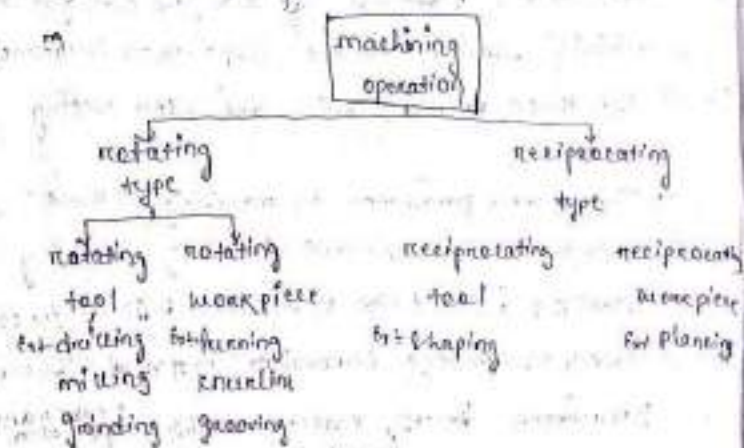 machining
operation
rotating
type
reciprocating
type
rotating tool
Ex:- drilling
milling
grinding
rotating workpiece
Ex:- turning
knurling
grooving
reciprocating tool
Ex:- shaping
reciprocating workpiece
Ex:- planing